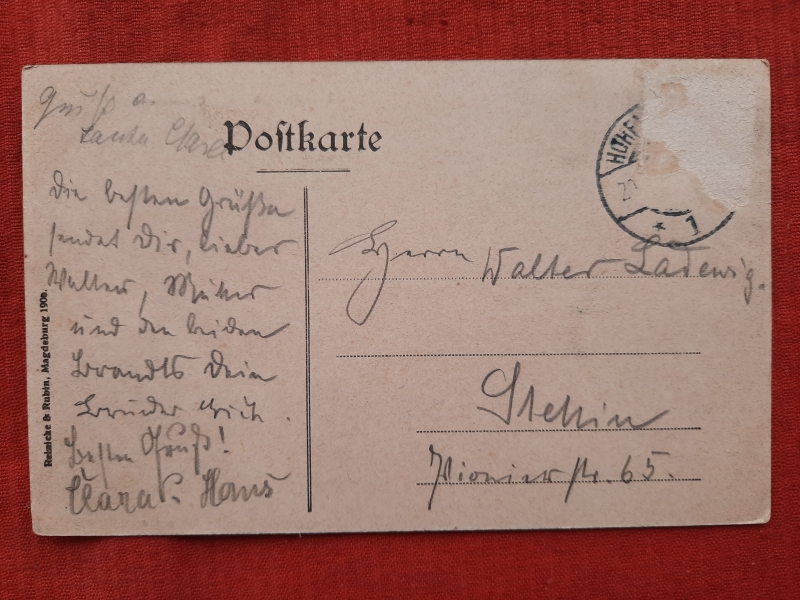 Gruß
Tante Clara
Postkarte
HOHEN
1
Die besten Grüße
sendet Dir, lieber
Walter, Mutter
und den beiden
Brandts Dein
Bruder Erich.
Besten Gruß!
Clara u. Hans
Herrn Walter Ladewig.
Stettin
Pionierstr. 65.
Reinicke & Rubin, Magdeburg 1906.